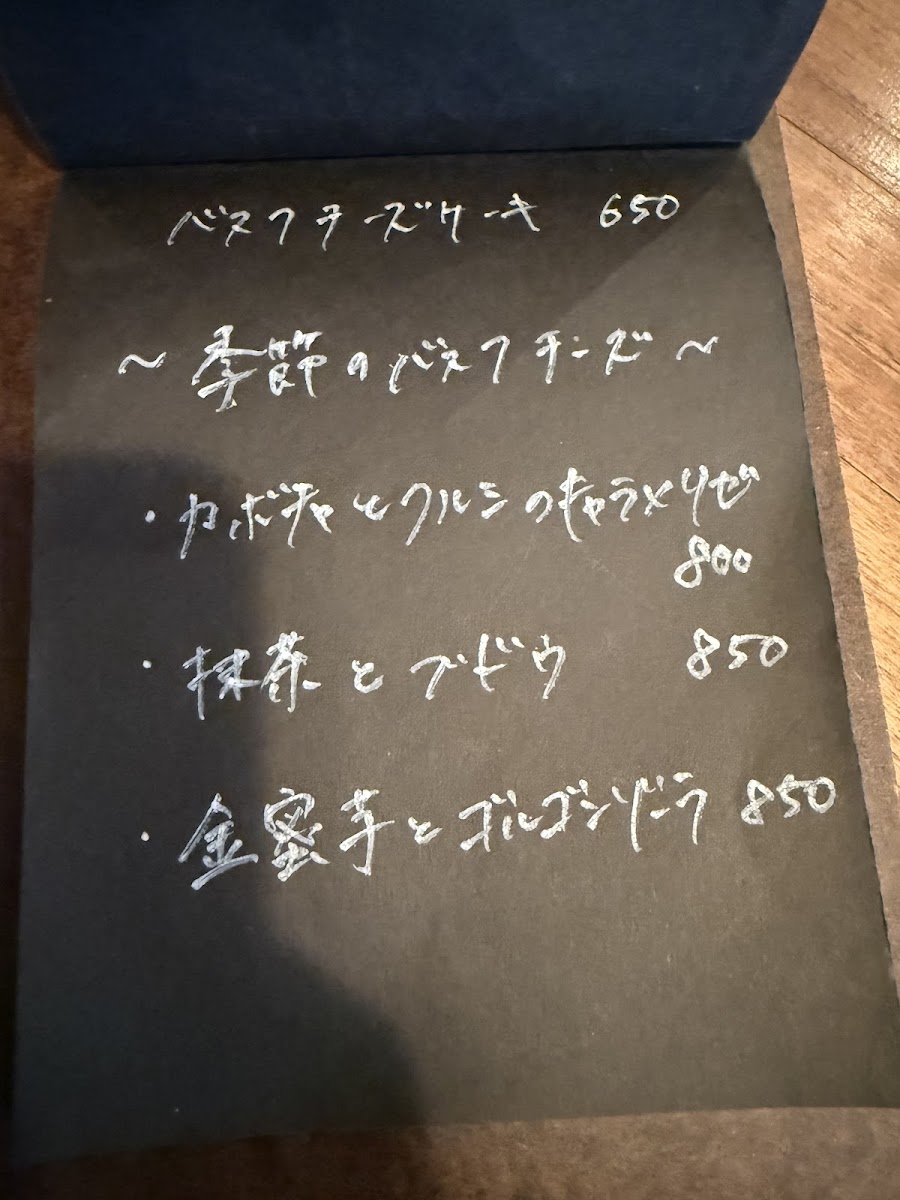 バスクチーズケーキ 650
~季節のバスクチーズ~
・カボチャとクルミのキャラメリゼ
800
・抹茶とブドウ 850
・金蜜芋とゴルゴンゾーラ 850